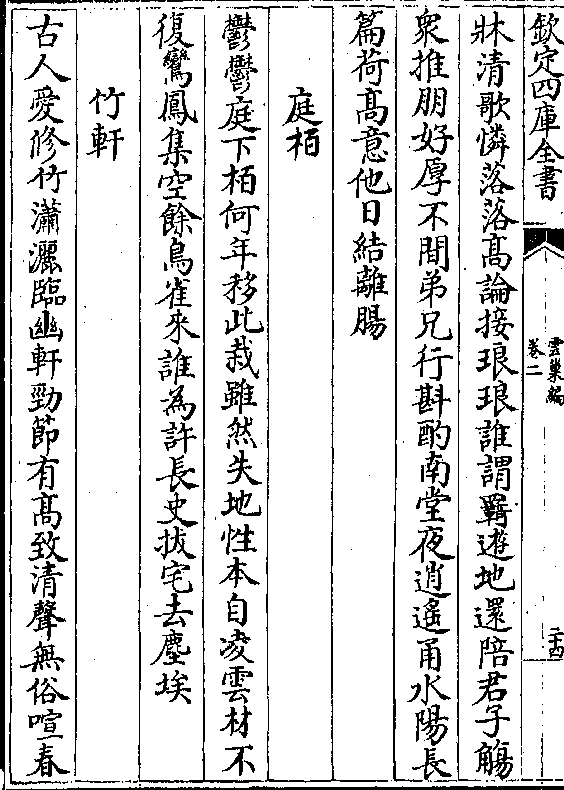 欽定四庫全書
雲巢編
卷二
二十四
牀清歌憐落落髙論接琅琅誰謂羇遊地還陪君子觴
衆推朋好厚不間弟兄行斟酌南堂夜逍遙甬水陽長
篇荷髙意他日結離腸
庭栢
鬱鬱庭下栢何年移此栽雖然失地性本自凌雲材不
復鸞鳳集空餘鳥雀來誰為許長史拔宅去塵埃
竹軒
古人愛修竹瀟灑臨幽軒勁節有髙致清聲無俗喧春